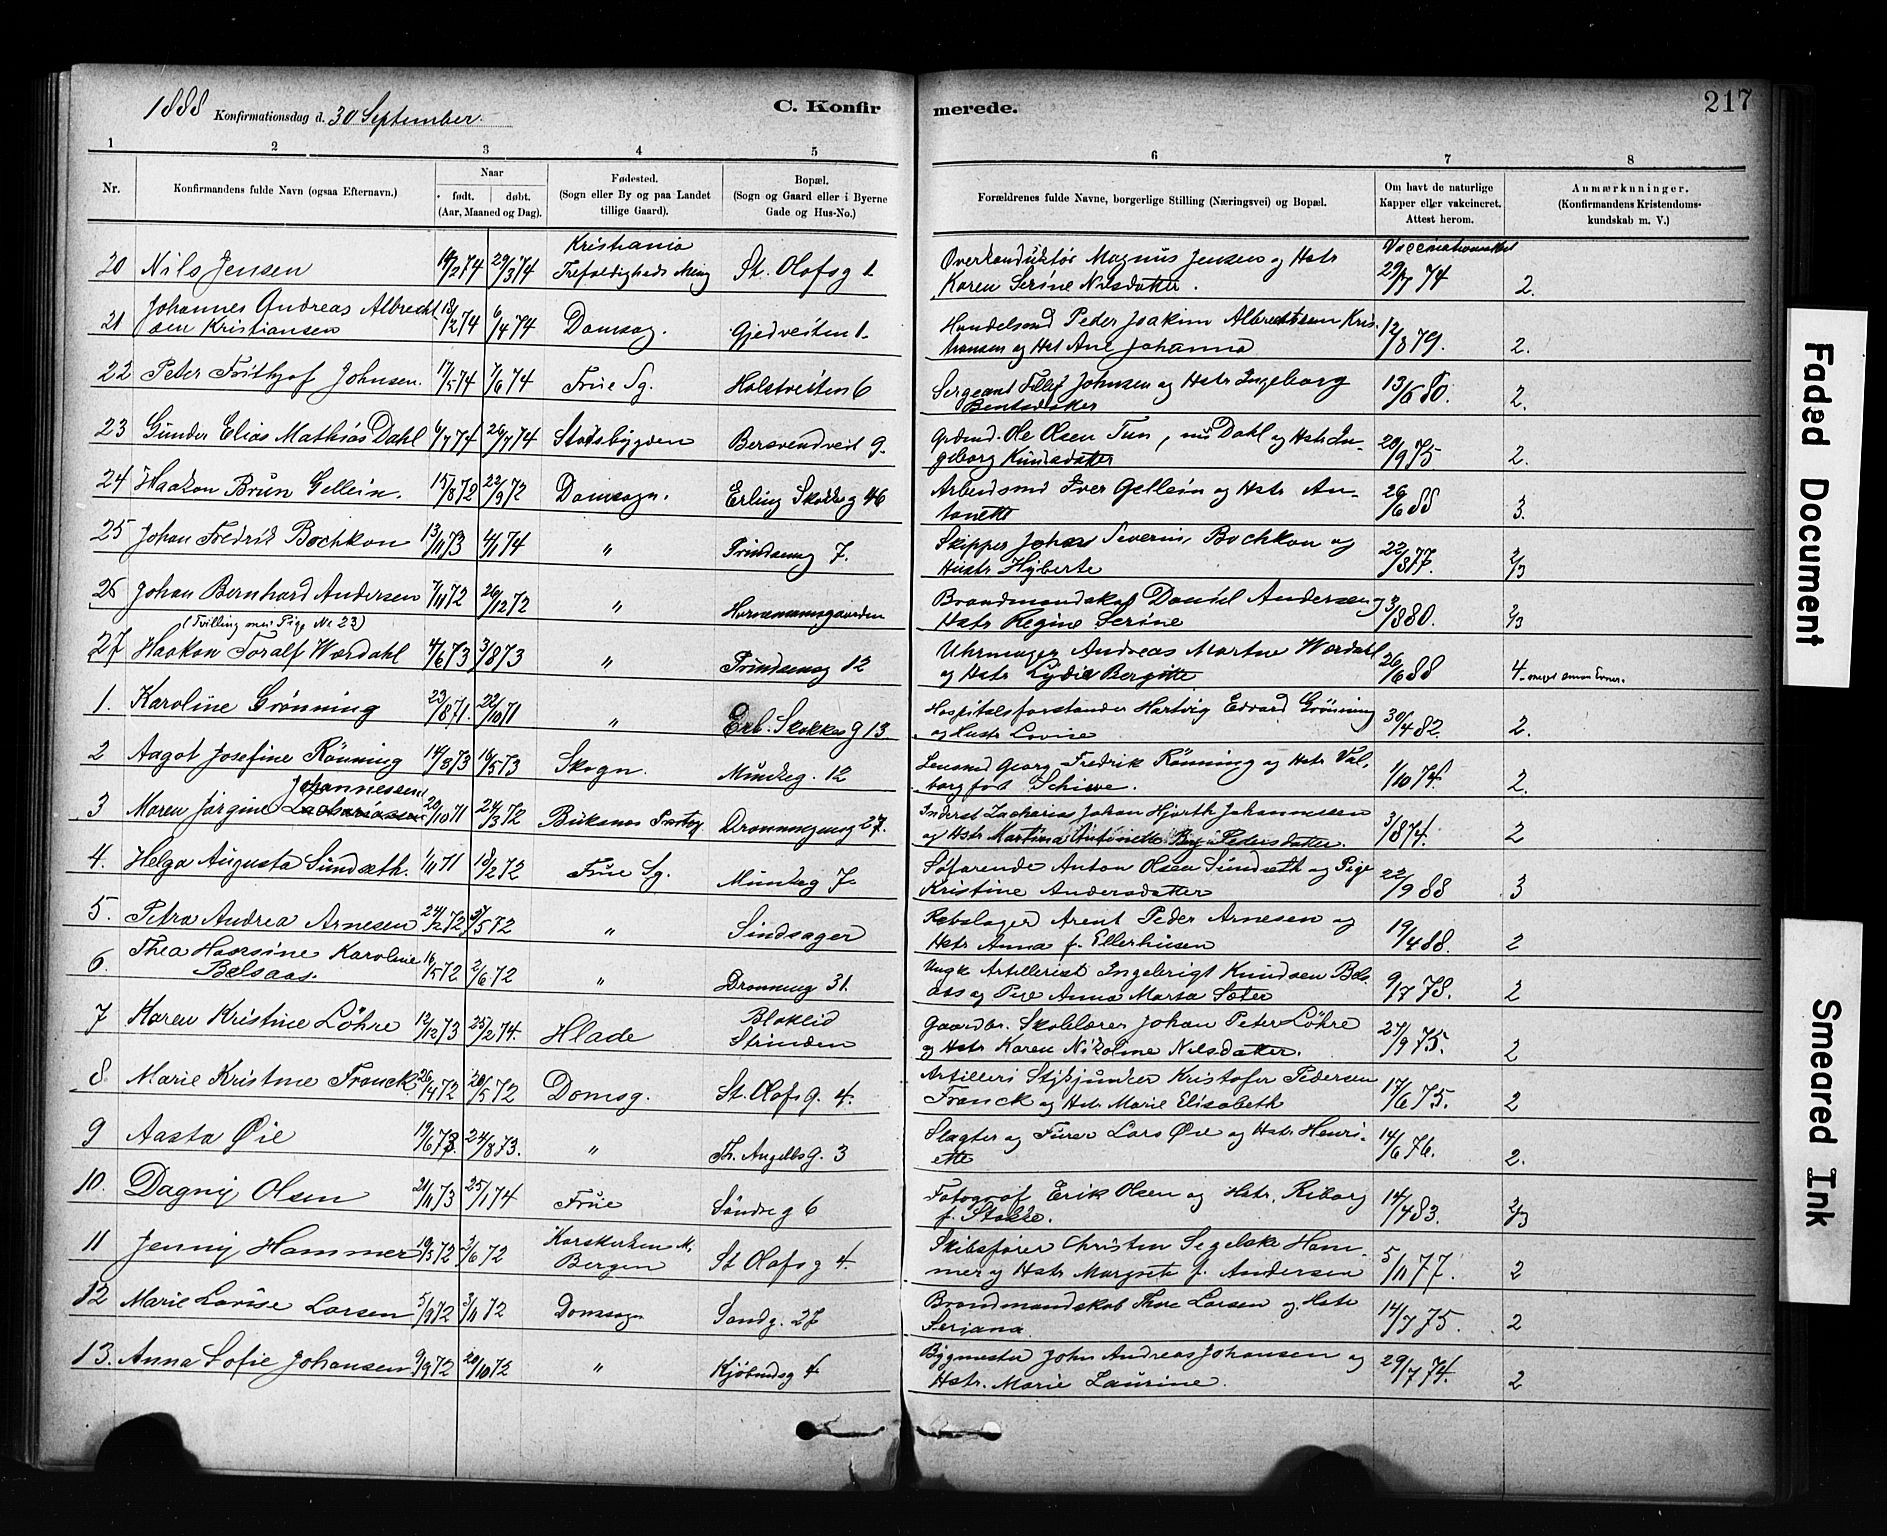 1888 Konfirmationsdag d. 30 September.
C. Konfirmerede.
217
1 2 3 4 5 6 7 8
Nr.
Konfirmandens fulde Navn (ogsaa Efternavn.)
Naar
født. døbt.
(Aar, Maaned og Dag).
Fødested.
(Sogn eller By og paa Landet
tillige Gaard).
Bopæl.
(Sogn og Gaard eller i Byerne
Gade og Hus-No.)
Forældrenes fulde Navne, borgerlige Stilling (Næringsvei) og Bopæl.
Om havt de naturlige
Kapper eller vakcineret.
Attest herom.
Anmærkninger.
(Konfirmandens Kristendoms-
kundskab m. V.)
Kristiania Overkonduktør Magnus Jensen og Hstr
20 Nils Jensen 29/3 74 Trefoldigheds Ming St. Olafsg 1. Karen Serine Nilsdatter. 29/7 74 2.
Johannes Andreas Albrecht
21 sen Kristiansen 18/2 74 6/4 74 Domsog. Gjedveiten 1. Handelsmd Peder Joakim Albrechtsen Kris-
tiansen og Hst Ane Johanna 12/8 79. 2.
22 Peter Frithjof Johnsen. 17/5 74 7/6 74 Frue Sg. Holstveiten 6 Sergeant Johnsen og Hstr Ingeborg
Bentsdatter 13/6 80. 2.
23 Gunder Elias Mathias Dahl 6/7 74 26/7 74 Stadsbygden Bersvendveit 9. Grdmd. Ole Olsen Tun, nu Dahl og Hstr In-
geborg Knudsdatter 20/9 75 2.
24 Haakon Brun Gellein. 15/8 72 22/9 72 Domsogn. Erling Skakkesg 46 Arbeidsmd Iver Gellein og Hstr An-
tonette 26/6 88 3.
25 Johan Fredrik Bochkon 13/11 73 4/1 74 " Prindsensg 7. Skipper Johan Severin Bochkon og
Hustr Hyberte 22/8 77. 2/3
26 Johan Bernhard Andersen 7/11 72 26/12 72 " Hornemannsgaarden Brandmandskab Daniel Andersen og
Hstr Regine Serine 3/8 80. 2/3
(Tvilling med Pige No 23)
27 Haakon Toralf Wærdahl 4/6 73 3/8 73 " Prindsensg 12 Uhrmager Andreas Martin Wærdahl
og Hstr Lydia Bergitte 26/6 88 4
1. Karoline Grønning 23/8 71. 22/10 71 " Erl. Skakkes g 13. Hospitalsforstander Hartvig Edvard Grønning
og Hustr Lovise 30/4 82 2.
2 Aagot Josefine Rønning 14/3 73 18/5 73 Skogn. Munkeg. 12 Lensmd Georg Fredrik Rønning og Hstr Val-
borg fød Schiwe. 1/10 74. 2.
Johannessen
3 Maren Jørgine Zachariassen 20/10 71 24/3 72 Buksnes Prstg Dronningensg 27. Inderst Zacharias Johan Hjorth Johannessen
og Hstr Martina Antonette Berg Pedersdatter. 3/8 74. 2
4. Helga Augusta Sundseth. 1/11 71 18/2 72 Frue Sg. Munkeg 7. Søfarende Anton Olsen Sundseth og Pige
Kristine Andersdatter 22/9 88 3
5. Petra Andrea Arnesen 24/2 72 /5 72 " Sindsager Rebslager Arent Peder Arnesen og
Hstr Anna f. Ellerhusen 19/4 88. 2
Thea Hansine Karoline
6. Belsaas. 16/5 72 2/6 72 " Dronningg 31. Ungk Artillerist Ingebrigt Knudsen Bels-
aas og Pige Anna Marta Sæter 9/7 78. 2
7 Karen Kristine Løhre 12/12 73 25/2 74. Hlade Bloklid
Strinden Gaardbr. Skolelærer Johan Peter Løhre
og Hstr Karen Nikoline Nilsdatter. 27/9 75. 2
8 Marie Kristine Franck 26/4 72 20/5 72 Domsg. St. Olafsg. 4. Artilleri Stykjunker Kristofer Pedersen
Franck og Hstr Marie Elisabeth 17/6 75. 2
9 Aasta Øie 19/6 73. 24/8 73. " Th. Angellsg. 3 Slagter og Furer Lars Øie og Hstr Henri-
ette 14/6 76. 2.
10. Dagny Olsen 21/11 73 25/1 74 Frue Søndreg 6 Fotograf Erik Olsen og Hstr. Reborg
f. Stokke. 14/7 83. 2/3
11 Jenny Hammer 19/3 72 2/6 72 Korskirken M.
Bergen St Olafsg 4. Skibsfører Christen Segelcke Ham-
mer og Hstr Margrete f. Andersen 5/11 77. 2
12 Marie Lovise Larsen 5/9 72 3/11 72 Domsogn Sandg. 27 Brandmandskab Thore Larsen og Hstr
Seriana. 14/7 75. 2
13. Anna Sofie Johansen 9/9 72 20/10 72 " Kjøbmdsg 4 Bygmester John Andreas Johansen og
Hstr. Marie Laurine. 29/7 74. 2
Faded Document
Smeared Ink